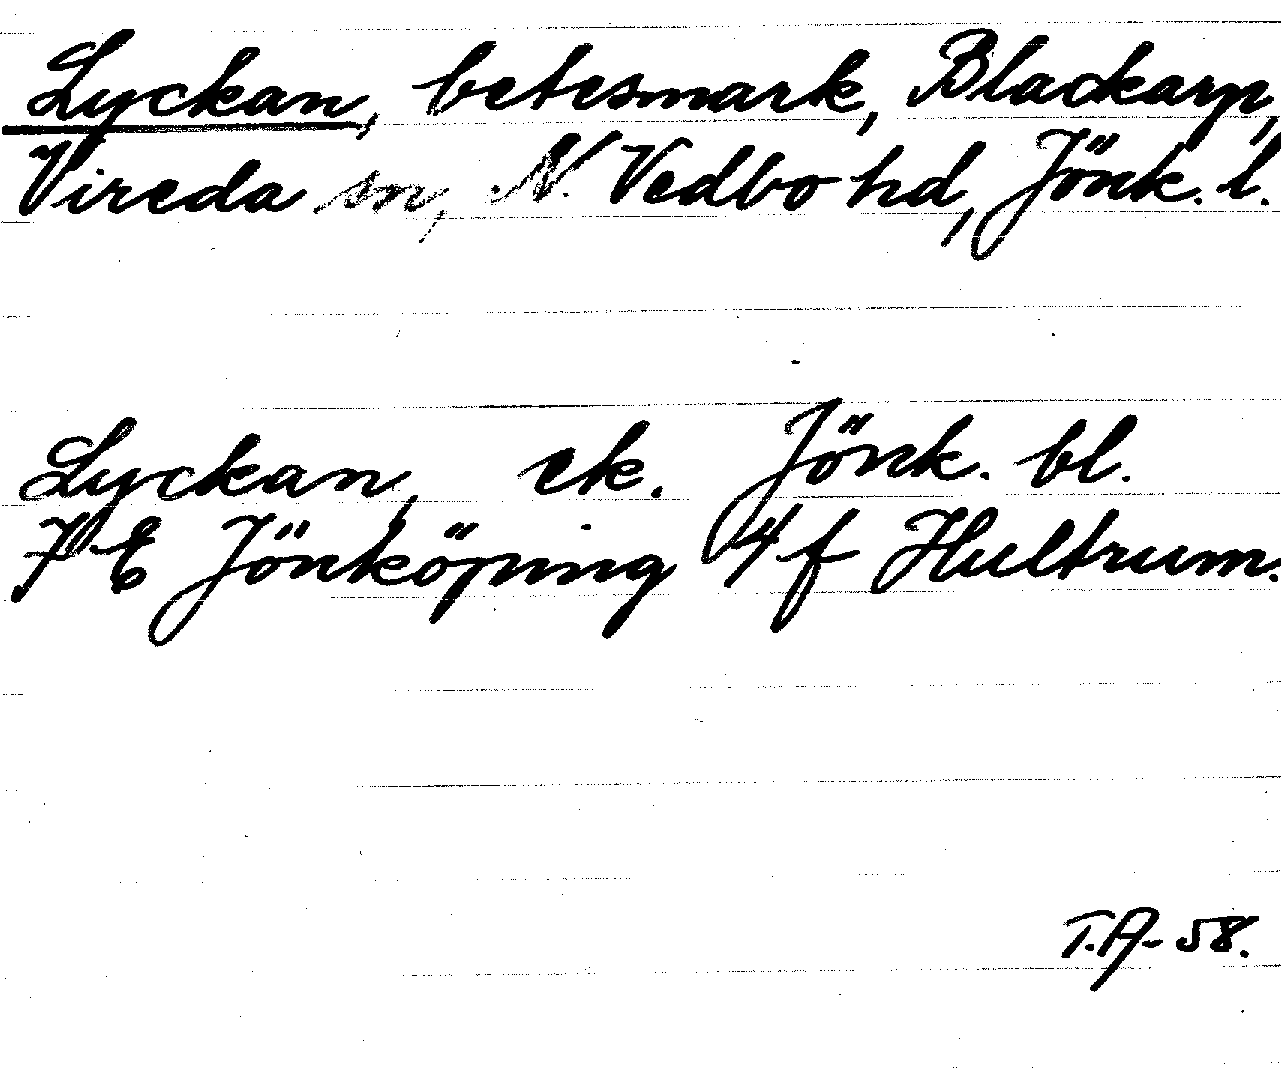 Lyckan, betesmark, Blackarp,
Vireda sn, N. Vedbo hd, Jönk. l.
Lyckan, ek. Jönk. bl.
7 E Jönköping 4 f Hultrum.
T.A-58.